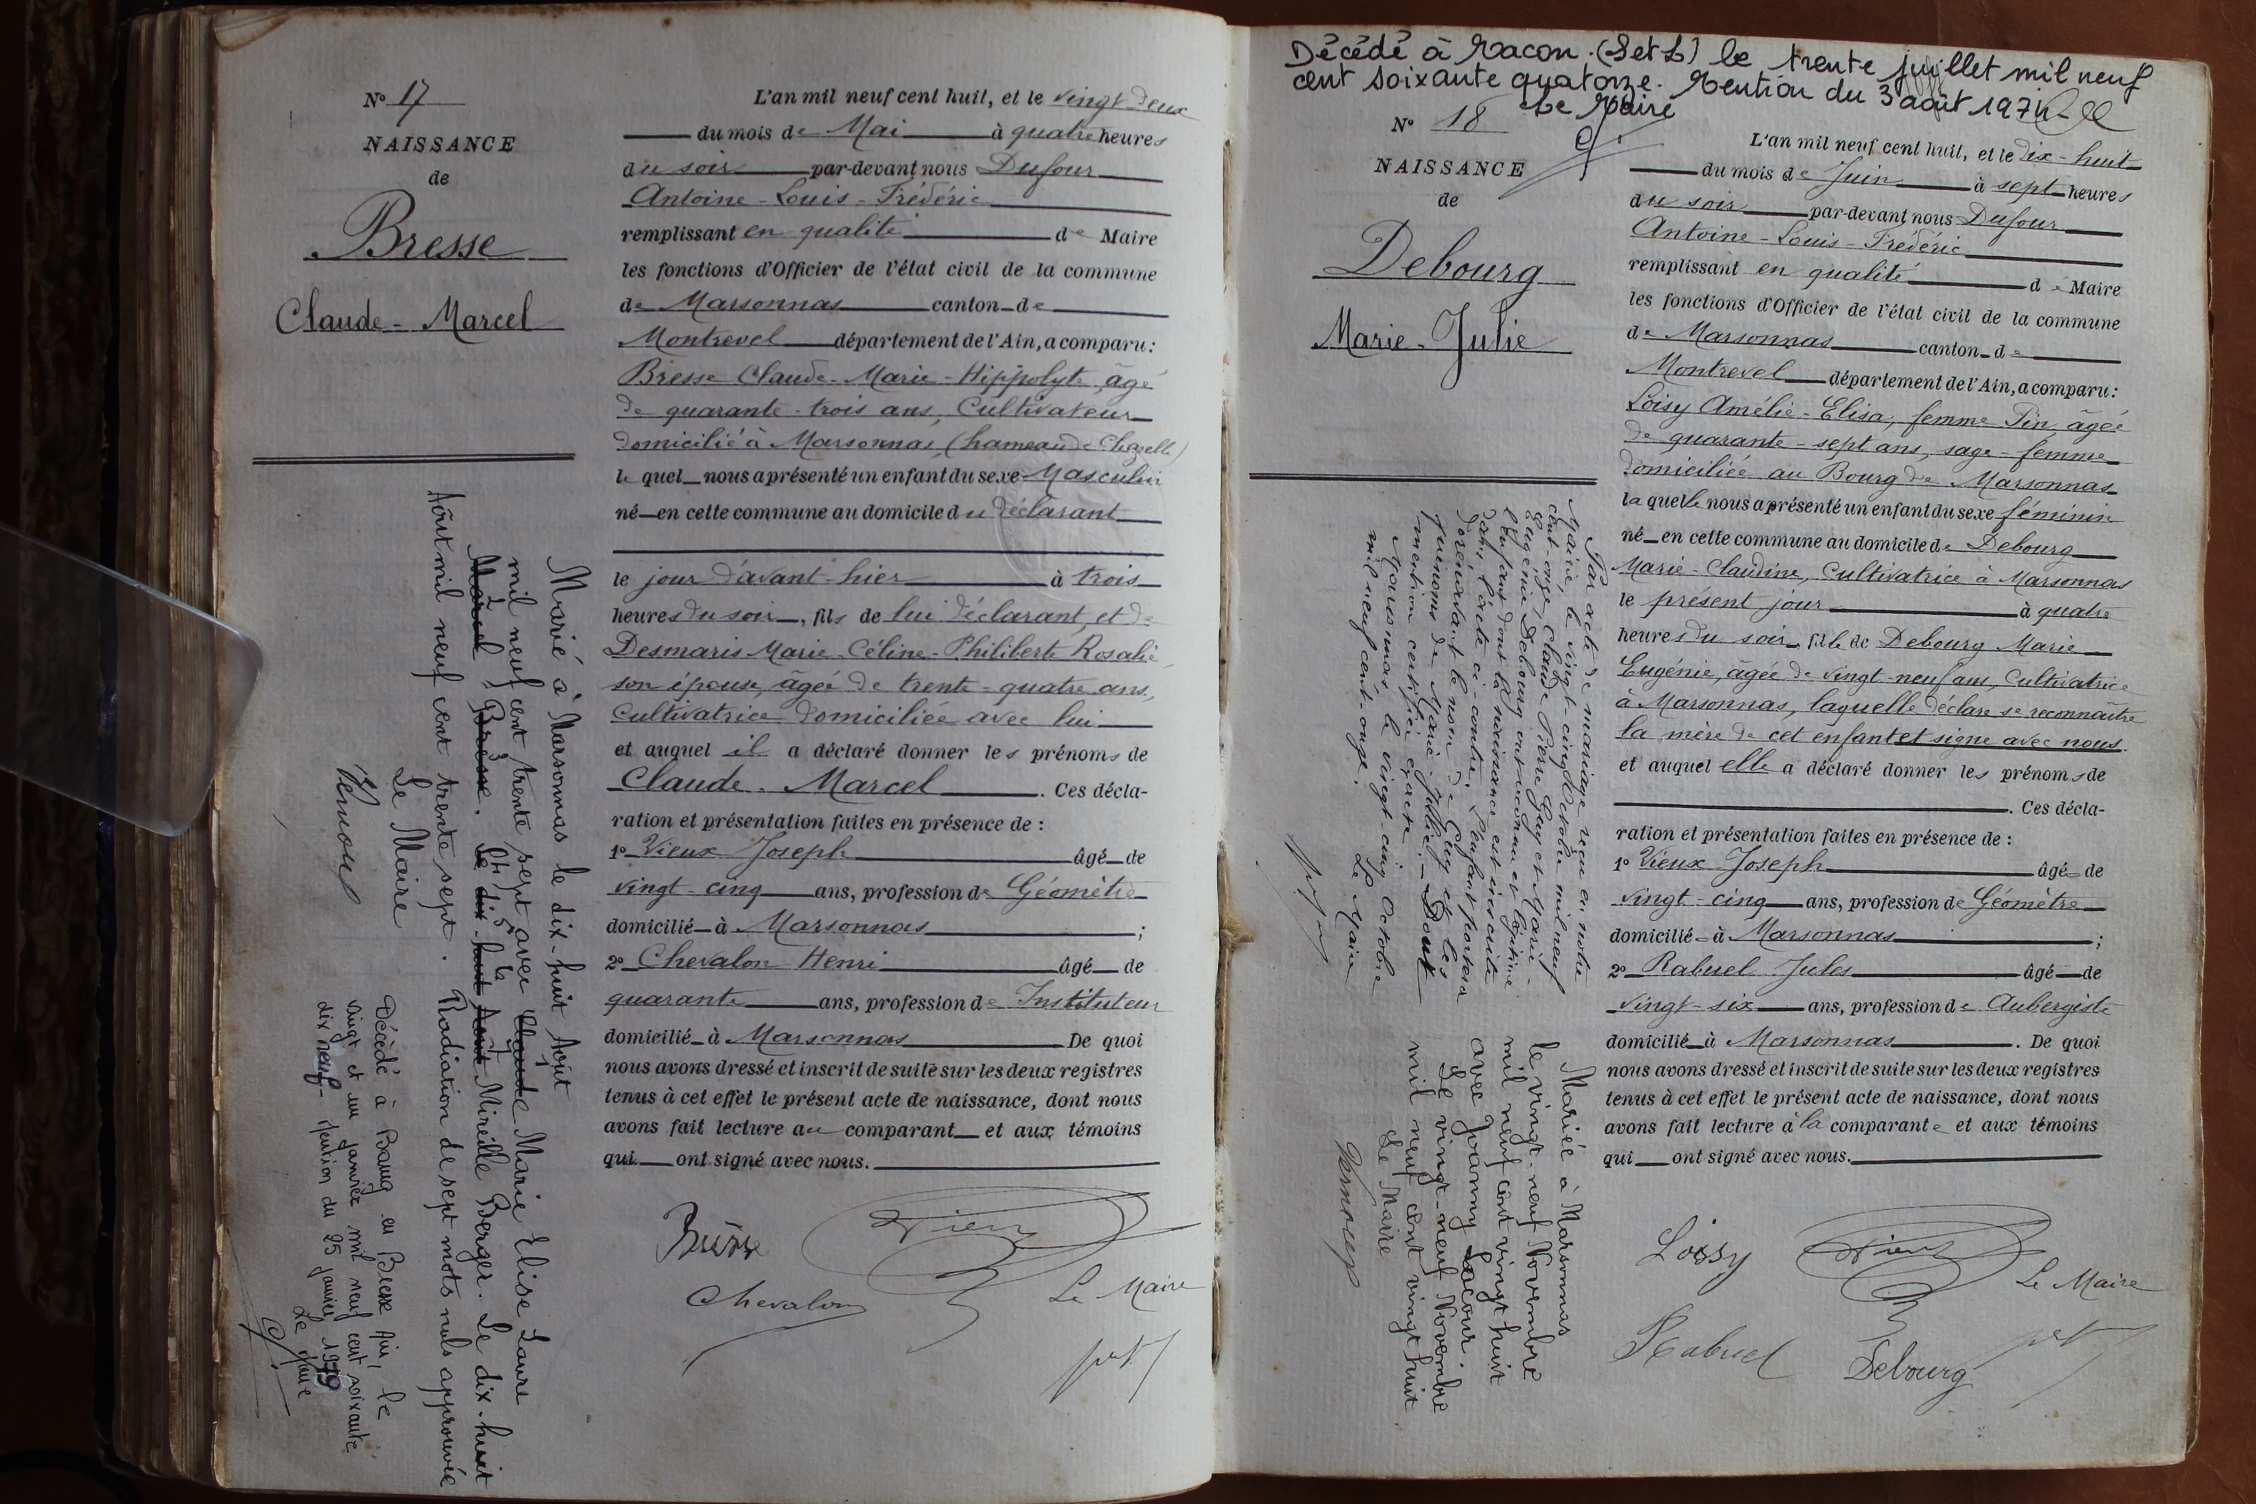 N° 17
NAISSANCE
de
Bresse
Claude - Marcel
L'an mil neuf cent huit, et le vingt-deux
du mois de Mai à quatre heures
du soir par-devant nous Dufour
Antoine - Louis - Frédéric
remplissant en qualité de Maire
les fonctions d'Officier de l'état civil de la commune
de Marsonnas canton de
Montrevel département de l'Ain, a comparu:
Bresse Claude - Marie - Hippolyte, âgé
de quarante-trois ans, Cultivateur
domicilié à Marsonnas, (hameau de Chazelle)
le quel nous a présenté un enfant du sexe Masculin
né en cette commune au domicile du déclarant
le jour d'avant-hier à trois
heures du soir, fils de lui déclarant, et de
Desmaris Marie - Céline - Philiberte Rosalie,
son épouse, âgée de trente-quatre ans,
Cultivatrice domiciliée avec lui
et auquel il a déclaré donner les prénoms de
Claude - Marcel. Ces décla-
ration et présentation faites en présence de :
1° Vieux Joseph âgé de
vingt-cinq ans, profession de Géomètre
domicilié à Marsonnas ;
2° Chevalon Henri âgé de
quarante ans, profession de Instituteur
domicilié à Marsonnas De quoi
nous avons dressé et inscrit de suite sur les deux registres
tenus à cet effet le présent acte de naissance, dont nous
avons fait lecture au comparant et aux témoins
qui ont signé avec nous.
Bresse Vieux
Chevalon Le Maire
Marié à Marsonnas le dix-huit Août
mil neuf cent trente sept avec Claude Marie Elise Laure
Marcel Bresse. Le dix-huit Août Mireille Berger. Le dix-huit
Août mil neuf cent trente sept. Radiation de sept mots nuls approuvée
Le Maire
Décédé à Bourg en Bresse Ain, le
vingt et un janvier mil neuf cent soixante
dix neuf - Mention du 25 janvier 1979
Le Maire
Décédé à Macon. (S et L) le trente juillet mil neuf
cent soixante quatorze. Mention du 3 août 1974
Le Maire
N° 18
NAISSANCE
de
Debourg
Marie - Julie
L'an mil neuf cent huit, et le dix-huit
du mois de Juin à sept heures
du soir par-devant nous Dufour
Antoine - Louis - Frédéric
remplissant en qualité de Maire
les fonctions d'Officier de l'état civil de la commune
de Marsonnas canton de
Montrevel département de l'Ain, a comparu:
Loisy Amélie - Elisa, femme Pin, âgée
de quarante-sept ans, sage-femme
domiciliée au Bourg de Marsonnas
la quelle nous a présenté un enfant du sexe féminin
né en cette commune au domicile de Debourg
Marie - Claudine, Cultivatrice à Marsonnas
le présent jour à quatre
heures du soir, fille de Debourg Marie
Eugénie, âgée de vingt-neuf ans, Cultivatrice
à Marsonnas, laquelle déclare se reconnaître
la mère de cet enfant et signe avec nous.
et auquel elle a déclaré donner les prénoms de
. Ces décla-
ration et présentation faites en présence de :
1° Vieux Joseph âgé de
vingt-cinq ans, profession de Géomètre
domicilié à Marsonnas ;
2° Rabuel Jules âgé de
vingt-six ans, profession de Aubergiste
domicilié à Marsonnas. De quoi
nous avons dressé et inscrit de suite sur les deux registres
tenus à cet effet le présent acte de naissance, dont nous
avons fait lecture à la comparante et aux témoins
qui ont signé avec nous.
Loisy Vieux
Le Maire
Rabuel Debourg
Par acte de mariage reçu en notre
Mairie, le vingt-cinq Octobre mil neuf
cent-onze, Claude Pierre Guy et Marie-
Eugénie Debourg ont reconnu et légitimé
l'enfant dont la naissance est inscrite
dans l'acte ci-contre. L'enfant portera
dorénavant le nom de Guy et les
prénoms de Marie-Julie. - Dont
mention certifiée exacte.
Marsonnas, le vingt cinq Octobre
mil neuf cent-onze. Le Maire
Mariée à Marsonnas
le vingt-neuf Novembre
mil neuf cent vingt huit
avec Joanny Lacour.
Le vingt-neuf Novembre
mil neuf cent vingt huit
Le Maire